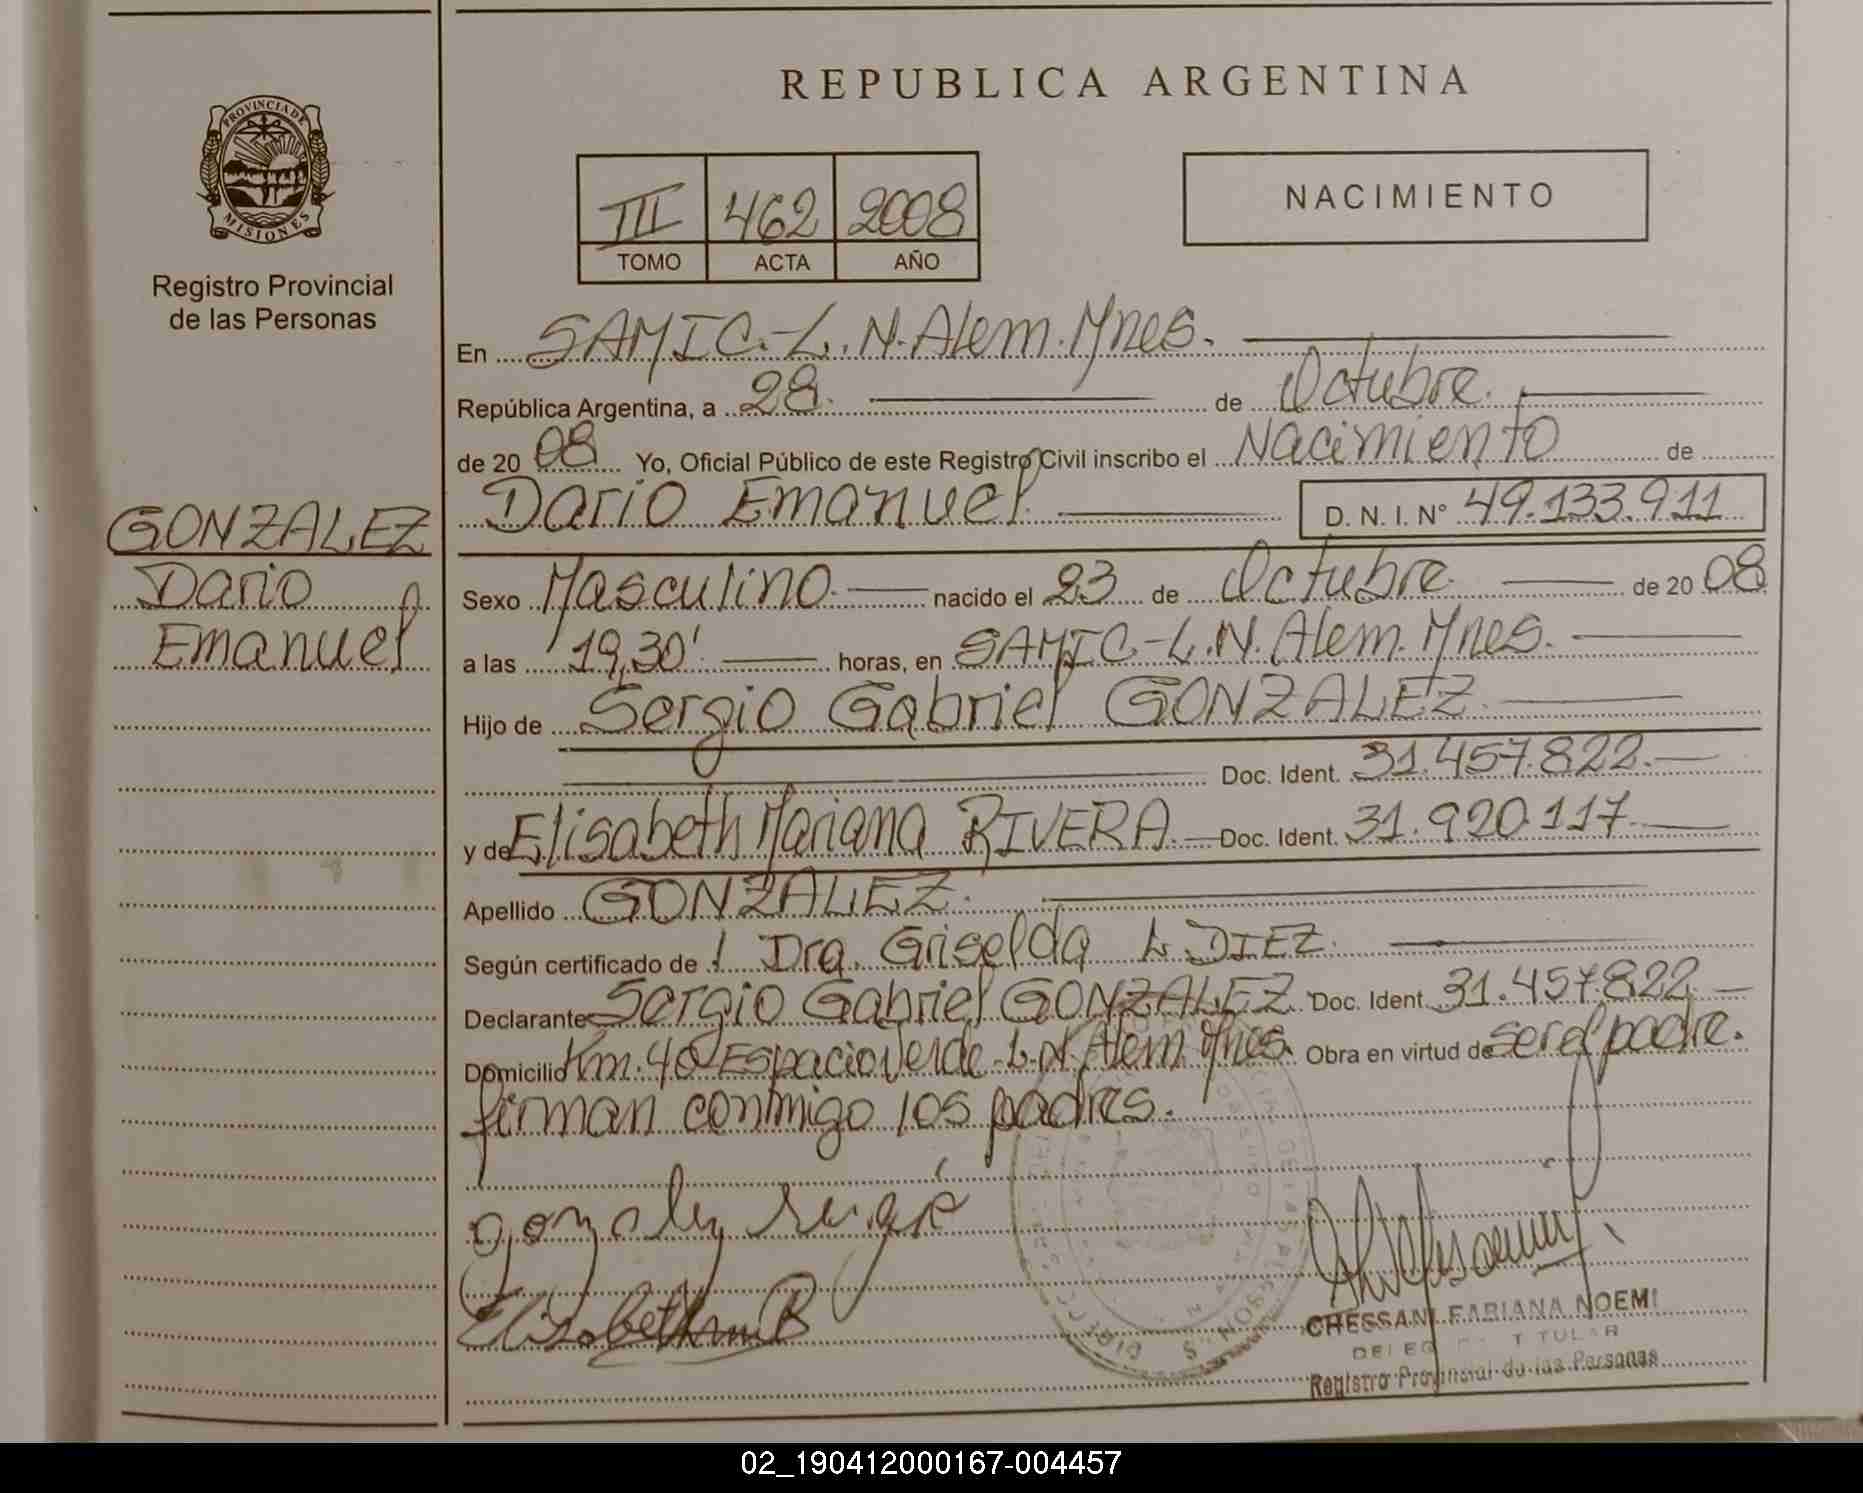 REPUBLICA ARGENTINA
PROVINCIA DE
MISIONES
Registro Provincial
de las Personas
III 462 2008
TOMO ACTA AÑO
NACIMIENTO
En SAMIC.-L.N.Alem.Mnes.
República Argentina, a 28. de Octubre.
de 20 08 Yo, Oficial Público de este Registro Civil inscribo el Nacimiento de
Dario Emanuel. D. N. I. N° 49.133.911
GONZALEZ
Dario
Emanuel
Sexo Masculino nacido el 23 de Octubre de 20 08
a las 19,30' horas, en SAMIC-L.N.Alem.Mnes.
Hijo de Sergio Gabriel GONZALEZ.
Doc. Ident. 31.457.822.
y de Elisabeth Mariana RIVERA. Doc. Ident. 31.920.117
Apellido GONZALEZ.
Según certificado de Dra. Griselda L. DIEZ.
Declarante Sergio Gabriel GONZALEZ Doc. Ident. 31.457.822
Domicilio Km.40 Espacio Verde-L.N.Alem.Mnes. Obra en virtud de ser el padre.
firman conmigo los padres.
gonzalez sergio
CHESSANI FABIANA NOEMI
TITULAR
Registro Provincial de las Personas
02_190412000167-004457